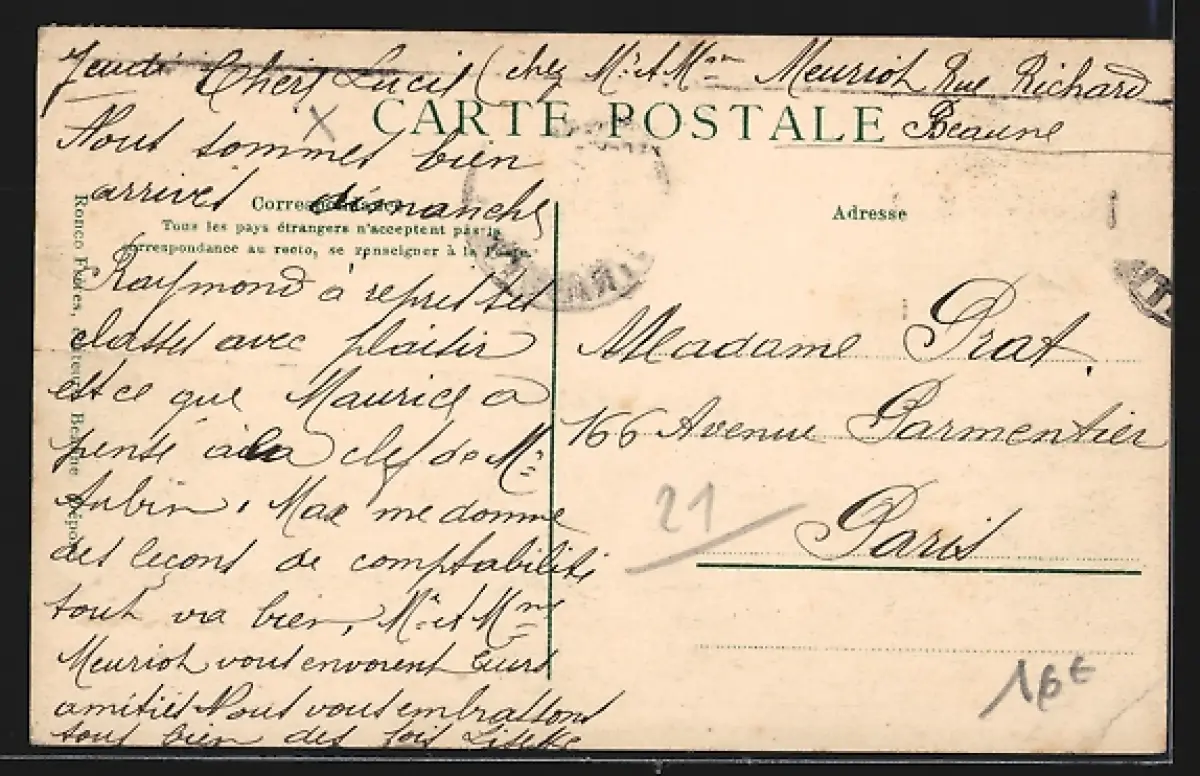 Jeudi Chers Lucil (chez Mr et Mme Meuriot Rue Richard
Beaune
CARTE POSTALE
Nous sommes bien
arrivés dimanche
Correspondance
Tous les pays étrangers n'acceptent pas la
correspondance au recto, se renseigner à la Poste.
Raymond a repris ses
classes avec plaisir
est ce que Maurice a
pensé à la clef de Mr
Aubin. Max me donne
des leçons de comptabilité
tout va bien, Mr et Mme
Meuriot vous envoient leurs
amitiés Nous vous embrassons
tous bien des fois
Ronco Frères, éditeurs Beaune Déposé
Adresse
Madame Prat.
166 Avenue Parmentier
Paris
21
16€